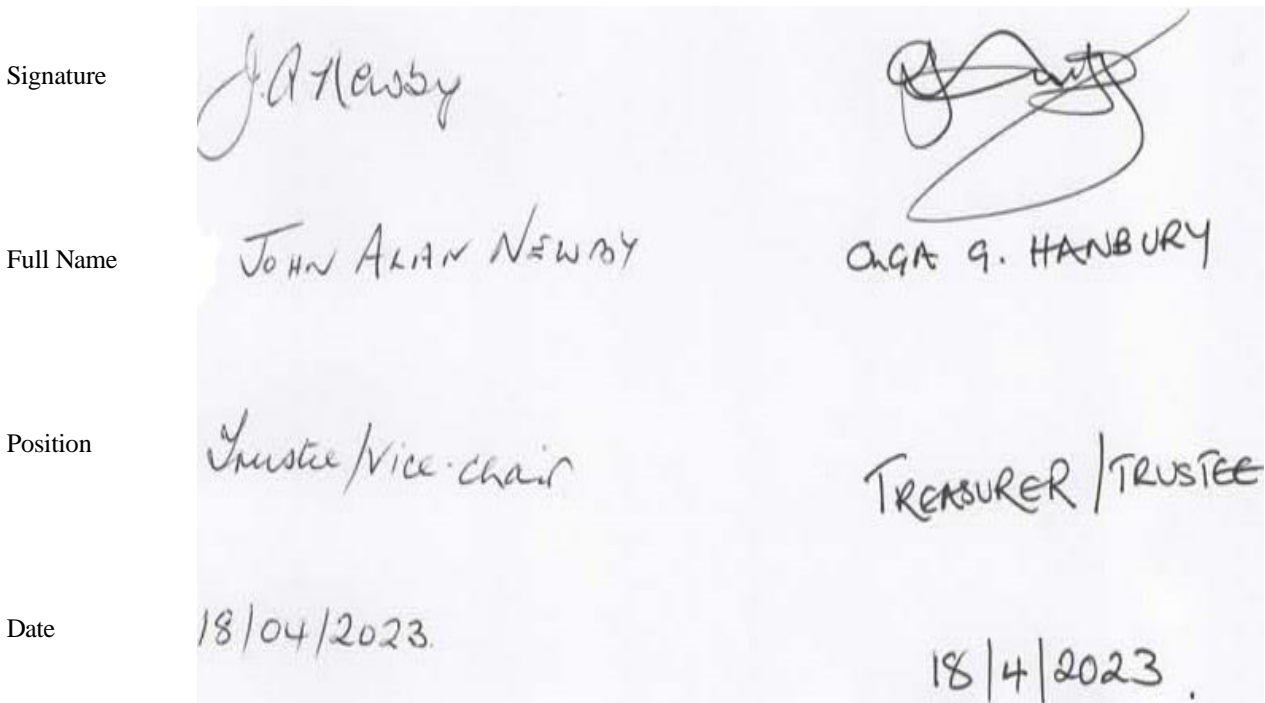 Signature J.A Newby
Full Name JOHN ALAN NEWBY OLGA G. HANBURY
Position Trustee/Vice-chair TREASURER/TRUSTEE
Date 18/04/2023. 18/4/2023.